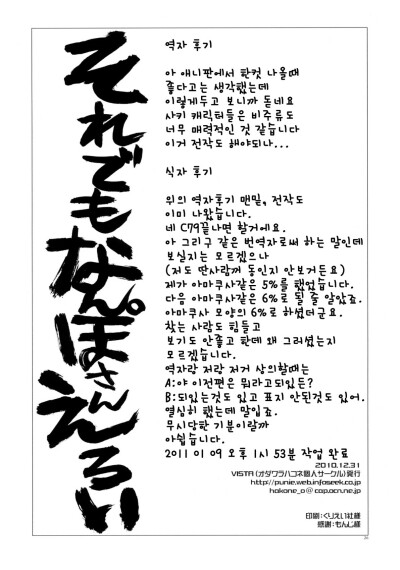 それでもなんぽさんえろい
역자 후기
아 애니판에서 한컷 나올때
좋다고는 생각했는데
이렇게두고 보니까 돋네요
사키 캐릭터들은 비주류도
너무 매력적인 것 같습니다
이거 전작도 해야되나...
식자 후기
위의 역자후기 맨밑, 전작도
이미 나왔습니다.
네 C79끝나면 할거에요.
아 그리구 같은 번역자로써 하는 말인데
보실지는 모르겠으나
(저도 딴사람꺼 동인지 안보거든요)
제가 아마쿠사같은 5%를 했었습니다.
다음 아마쿠사같은 6%로 될 줄 알았죠.
아마쿠사 모양의 6%로 하셨더군요.
찾는 사람도 힘들고
보기도 안좋고 한데 왜 그러셨는지
모르겠습니다.
역자랑 저랑 저거 상의할때는
A:야 이전편은 뭐라고되있든?
B:되있는것도 있고 표지 안된것도 있어.
열심히 했는데 말입죠.
무시당한 기분이랄까
아쉽습니다.
2011 01 09 오후 1시 53분 작업 완료
2010.12.31
VISTA(オダワラハコネ個人サークル)発行
http://punie.web.infoseek.co.jp
hakone_o@cap.ocn.ne.jp
印刷:くりえい社様
感謝:もんじ様